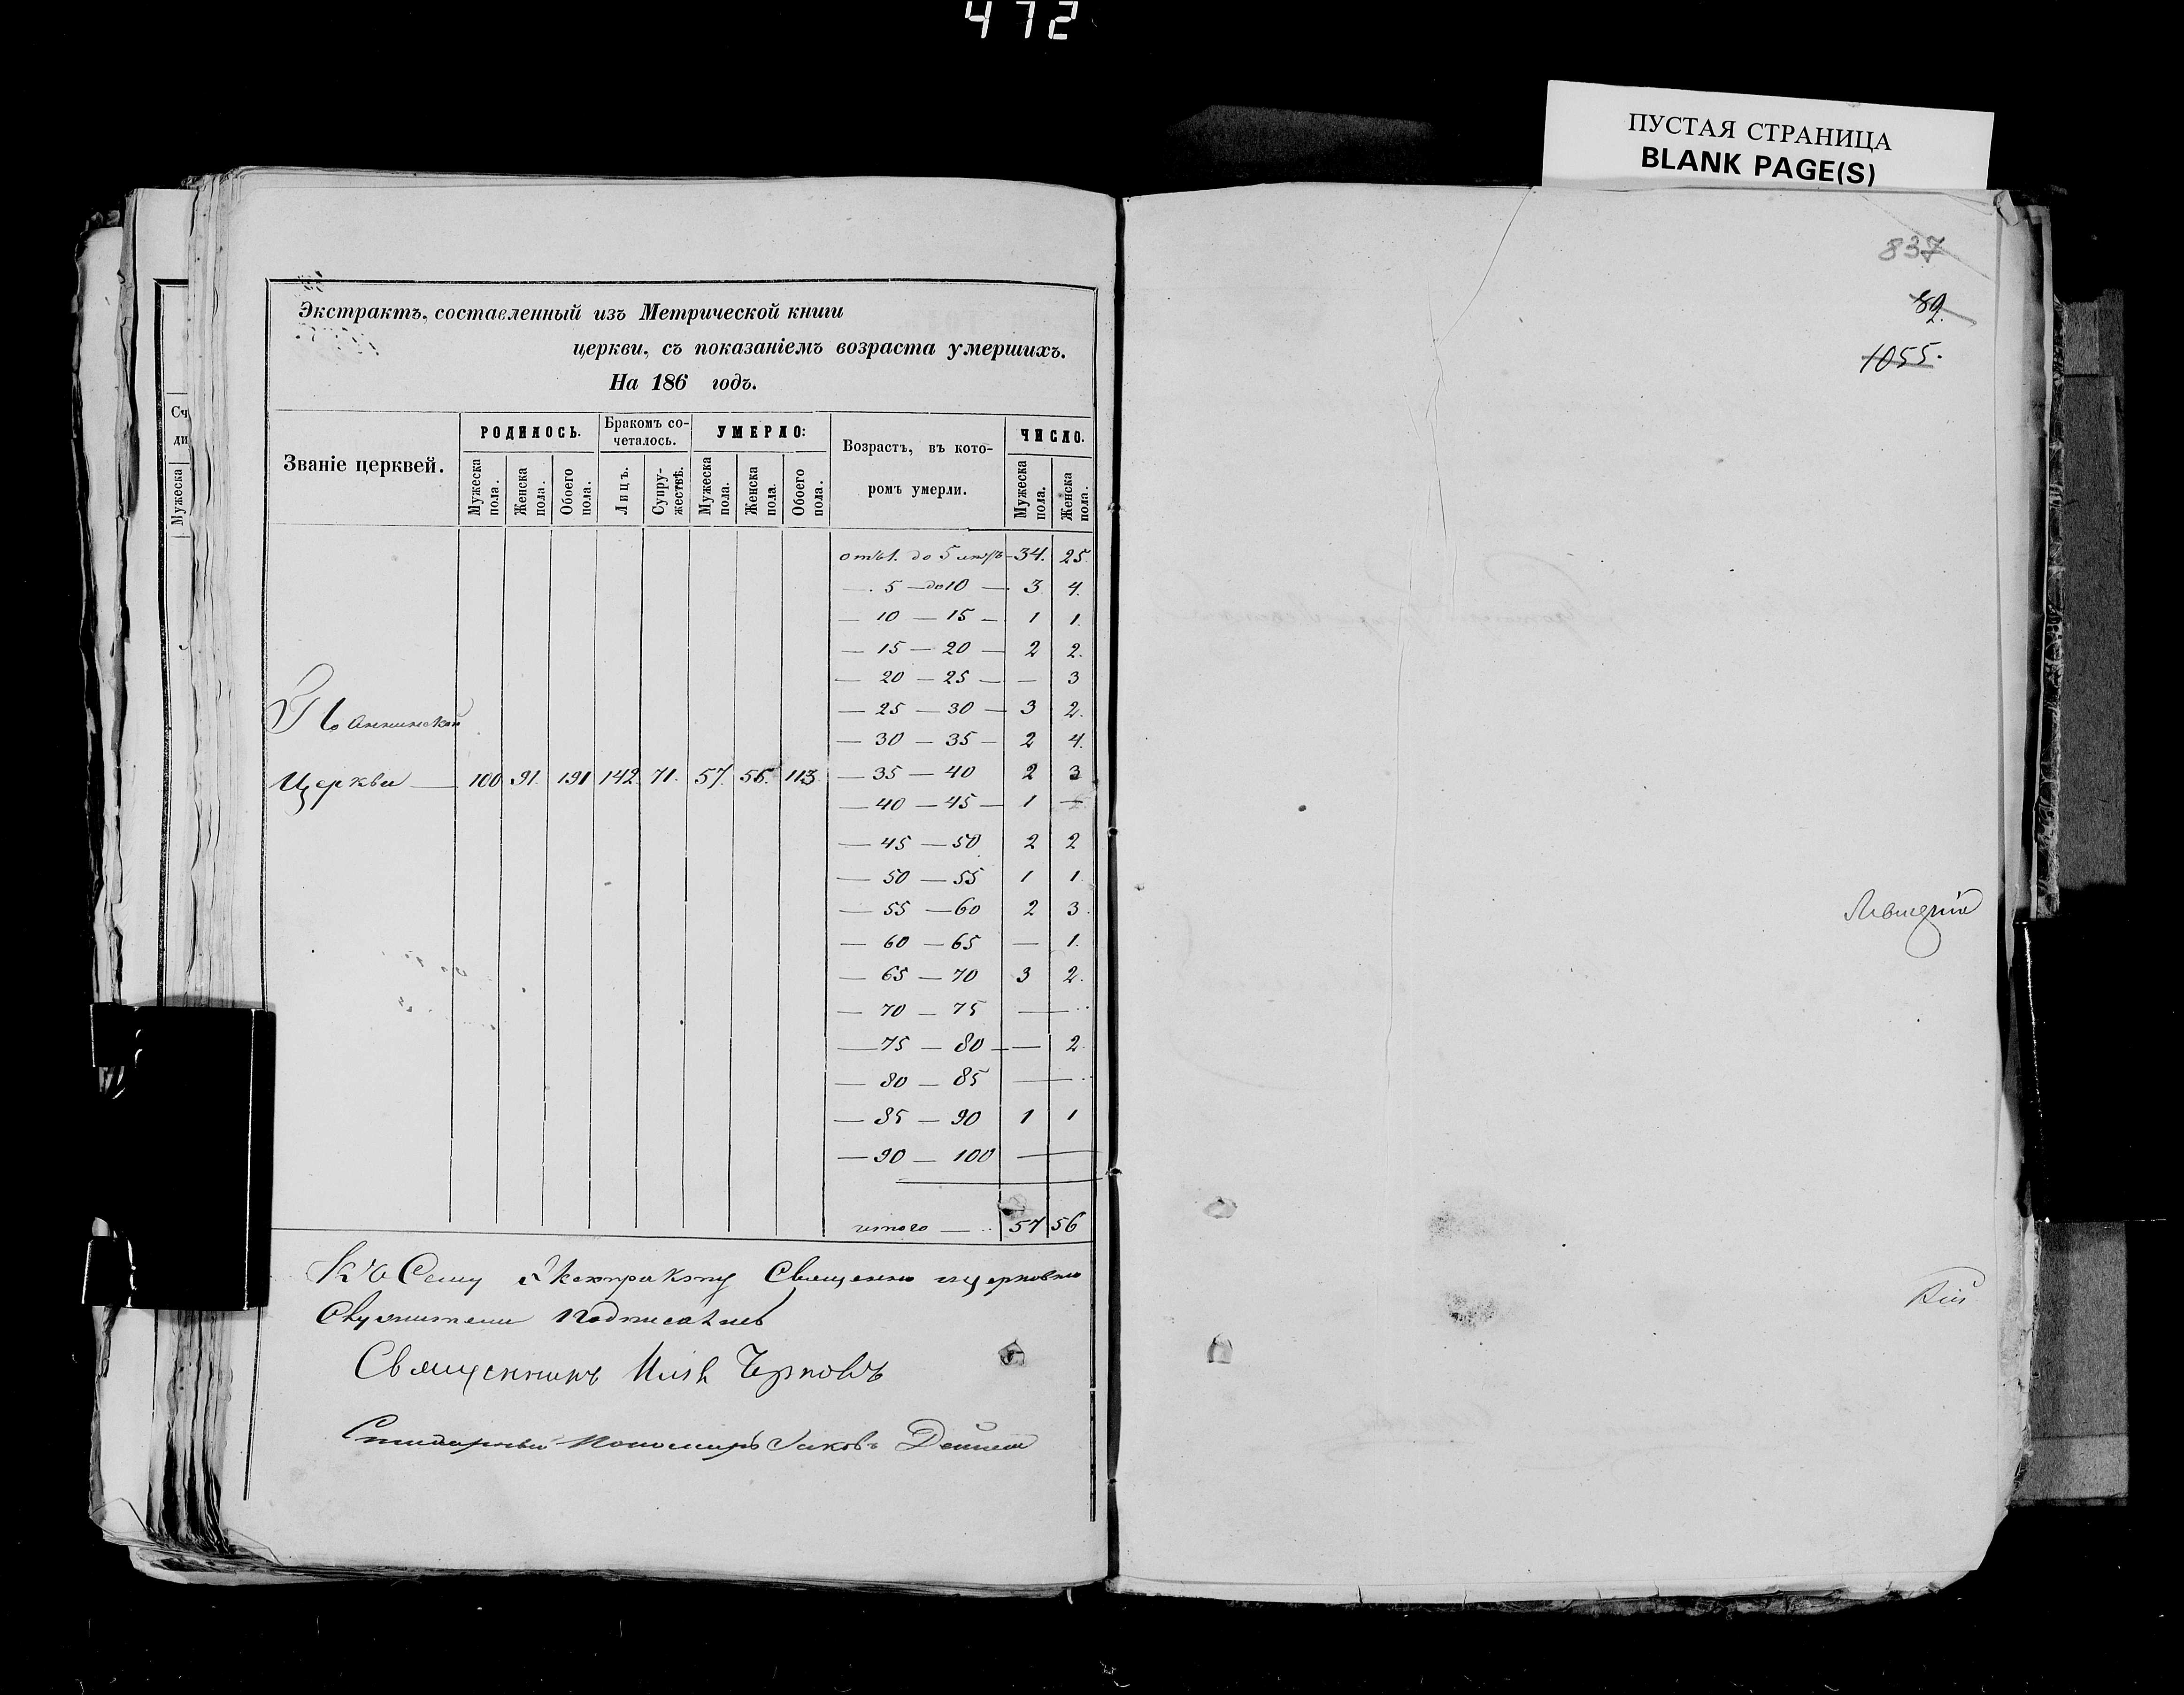 472
ПУСТАЯ СТРАНИЦА
BLANK PAGE(S)
Экстрактъ, составленный изъ Метрической книги
церкви, съ показаніемъ возраста умершихъ.
На 186 годъ.
Званіе церквей.
РОДИЛОСЬ.
Бракомъ со-
четалось.
УМЕРЛО:
Возрастъ, въ кото-
ромъ умерли.
ЧИСЛО.
Мужеска пола.
Женска пола.
Обоего пола.
Лицъ.
Супру-
жествъ.
Мужеска пола.
Женска пола.
Обоего пола.
Мужеска пола.
Женска пола.
отъ 1. до 5 34. 25
— 5 — до 10 — 3 4.
— 10 — 15 — 1 1.
— 15 — 20 — 2 2.
— 20 — 25 — — 3
— 25 — 30 — 3 2.
— 30 — 35 — 2 4.
Церкви — 100 91. 191 142. 71. 57. 56. 113. — 35 — 40 2 3
— 40 — 45 — 1 —
— 45 — 50 2 2
— 50 — 55 1 1.
— 55 — 60 2 3.
— 60 — 65 — 1.
— 65 — 70 3 2.
— 70 — 75 —
— 75 — 80 — — 2.
— 80 — 85 —
— 85 — 90 1 1
— 90 — 100 —
итого — 57 56
Къ Сему Екстракту Священно и церковно
Служители Подписались
Священникъ Илья
Пономарь Іаковъ
Сч
ди
Мужеска
837
82.
1055.